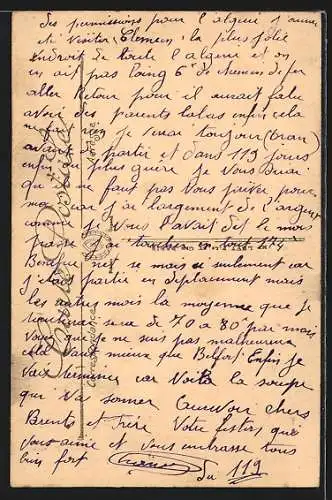 des permissions pour l'algerie j'aurai
et visiter Clemcen : la plus jolie
endroit de toute l'algerie et on
en ait pas loing 6h de chemin de fer
aller Retour pour il aurait falu
avoir des parents labas enfin cela
ne rien je serai toujour (Oran)
avant de partir et dans 119 jours
enfin plus guère je Vous
que ne faut pas Vous priver pour
moi car j'ai largement de l'argent
comme je Vous l'avait dit le mois
passé j'ai toucher en tout 174
se mois ci seulement car
j'etais partie en deplacement mais
les autres mois la moyenne que je
toucherai sera de 70 a 80 par mois
Vous que je ne suis pas malheureux
cela Vaut mieux que Belfort : Enfin je
Vais terminer car Voila la soupe
que Va sonner Recevoir chers
et Frère Votre fiston qui
vous aime et vous embrasse tous
bien fort du 119
Carte Postale
Correspondance
Adresse